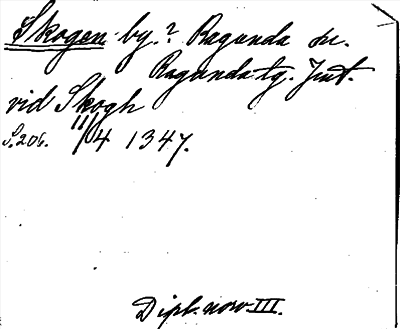 Skogen by? Ragunda sn.
Ragunda tg. Jmt.
vid Skogh
S. 206. 11/4 1347.
Dipl. norv. III.